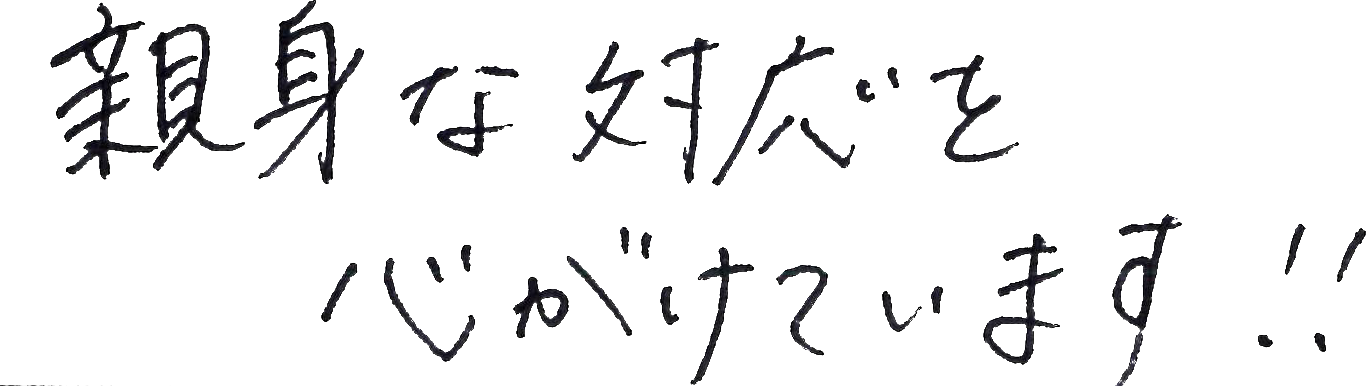 親身な対応を
心がけています!!